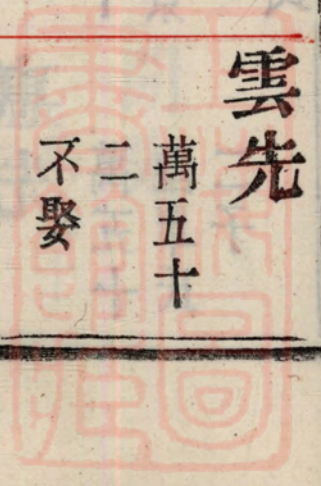 雲先
萬五十
二
不娶